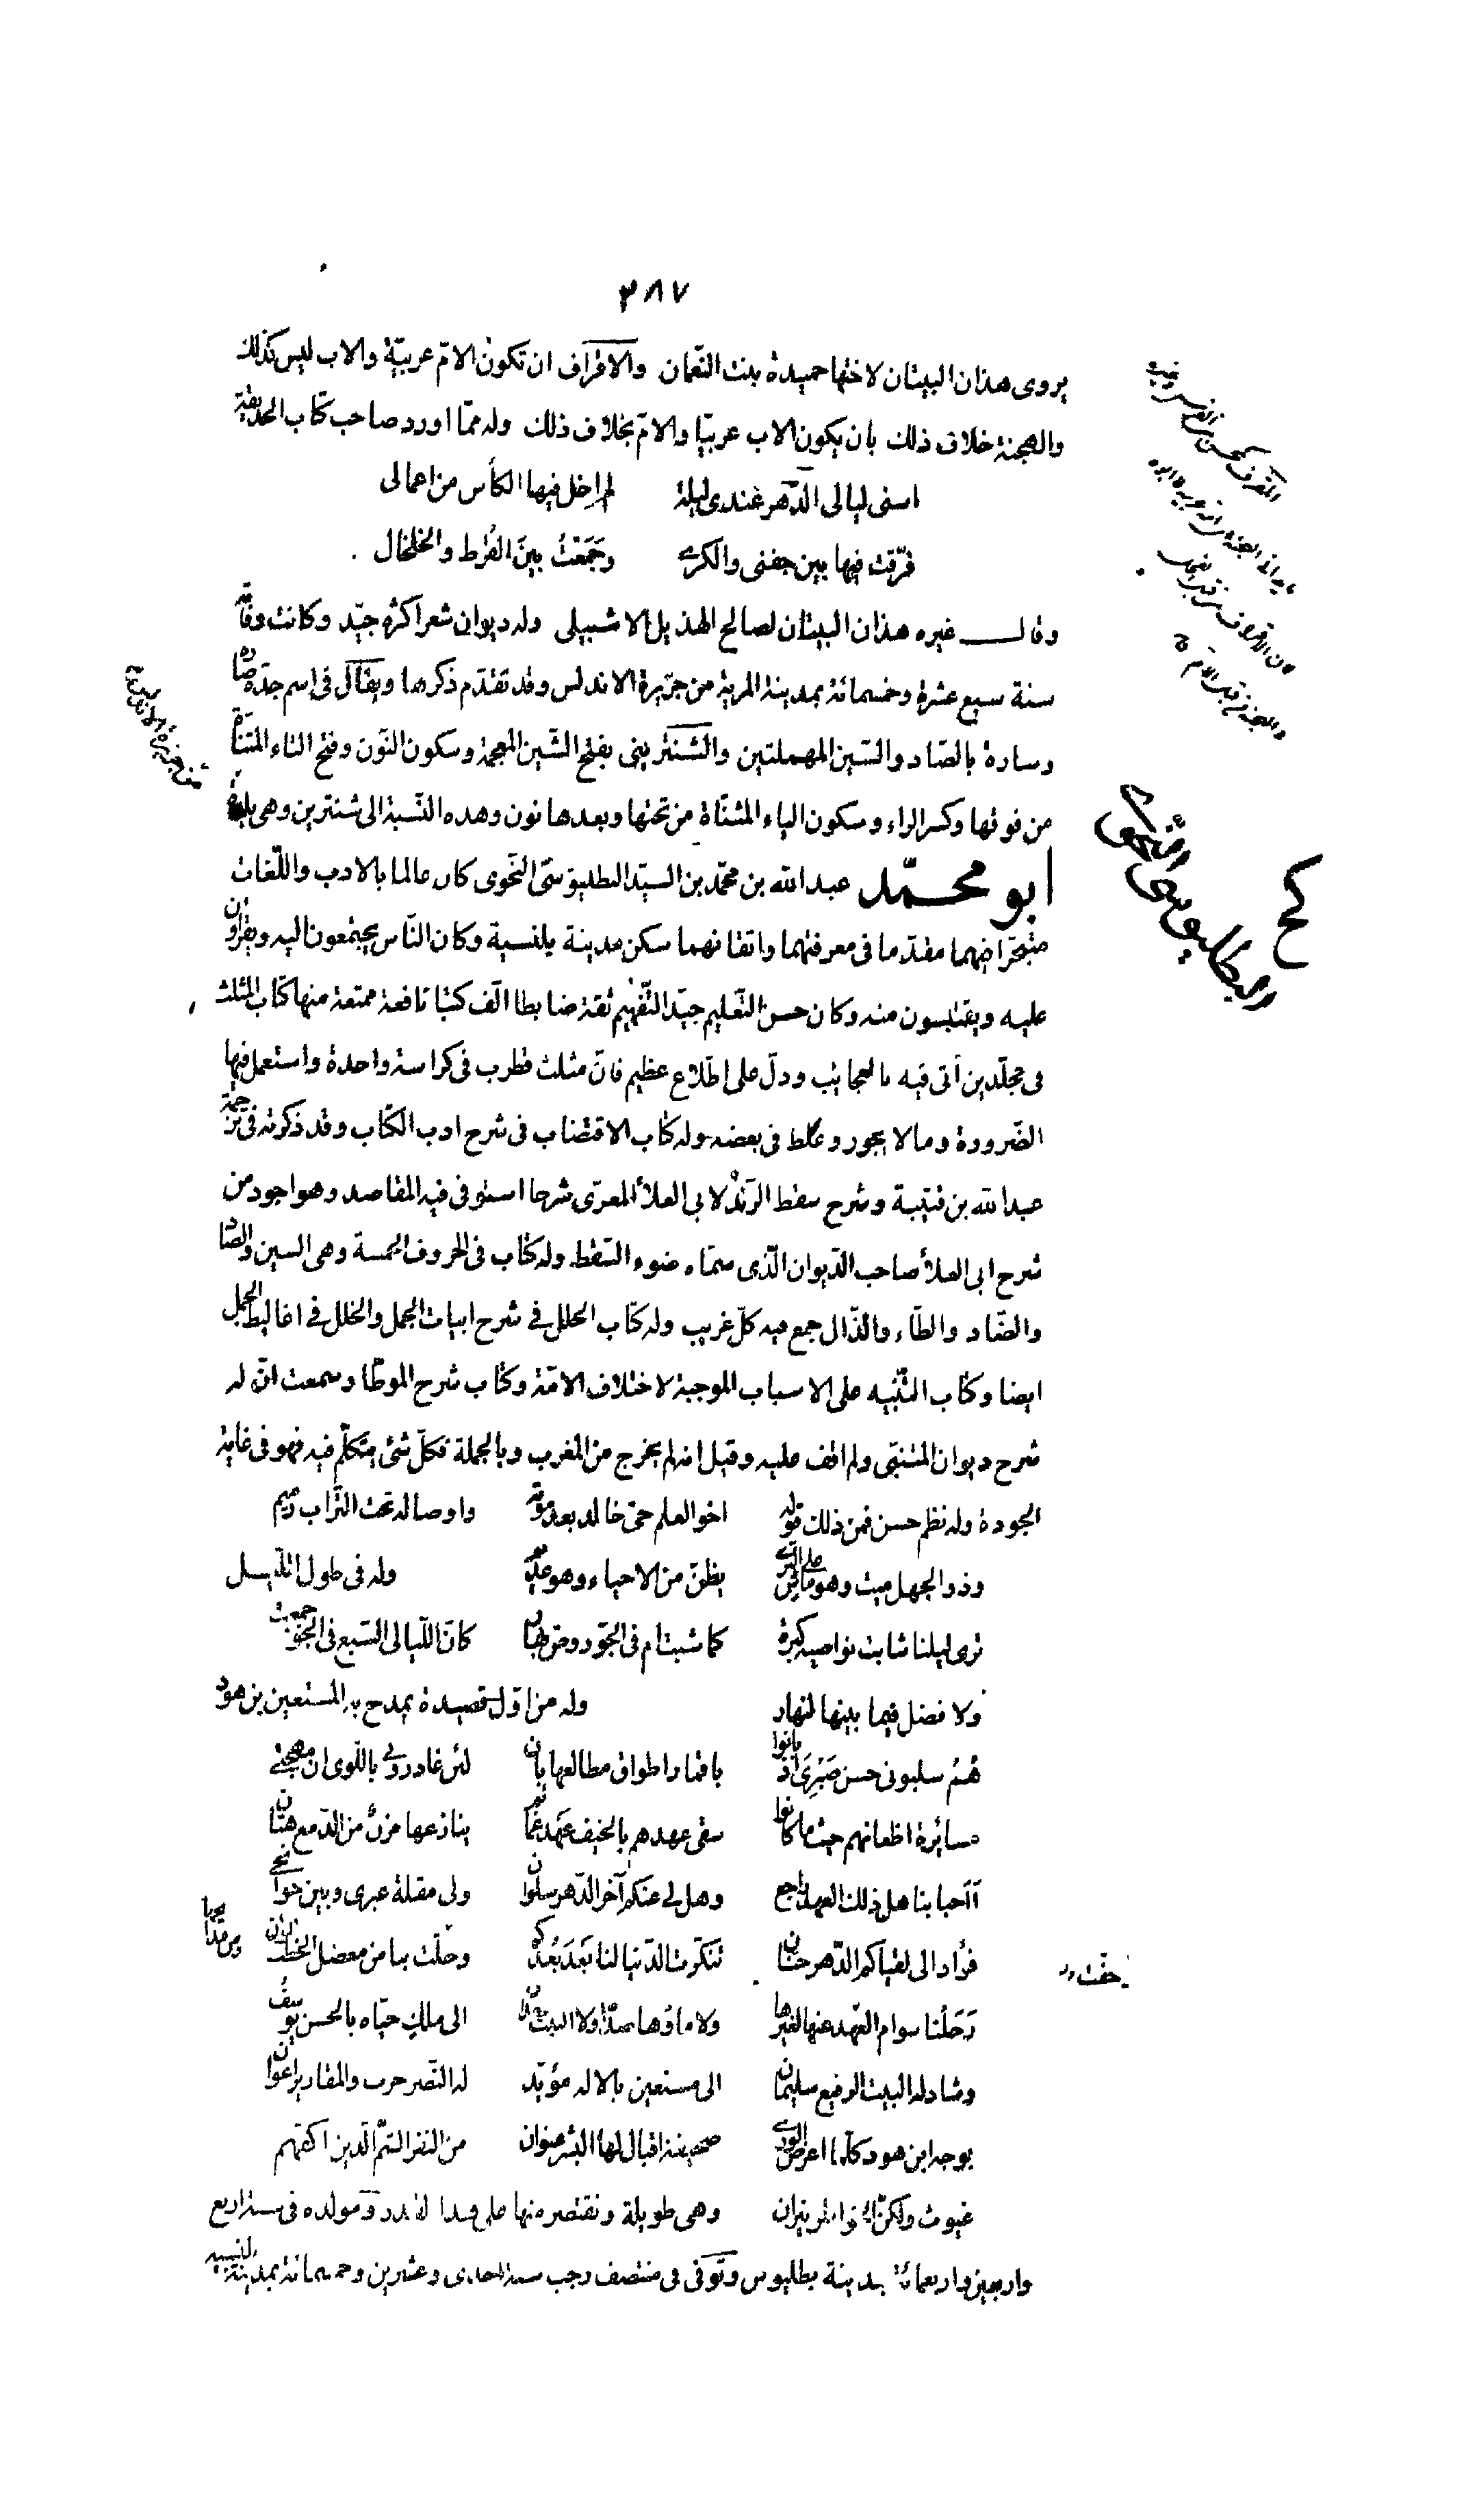 ٣٨٧
يروى هذان البيتان لاختها حميدة بنت النّعمان والاقراف ان تكون الامّ عربيّة والاب ليس كذلك
والهجنة خلاف ذلك بان يكون الاب عربيّا والامّ بخلاف ذلك وله ممّا اورد صاحب كتاب الحديقة
اسنى ليالى الدّهر عندى ليلة لم اخل فيها الكأس من اعمالى
فرّقت فيها بين جفنى والكرى وجَمَعْتُ بينَ القُرط والخلخال
وقال غيره هذان البيتان لصالح الهذيل الاشبيلى وله ديوان شعر اكثره جيّد وكانت وفاته
سنة سبع عشرة وخمسمائة بمدينة المرية من جزيرة الاندلس وقد تقدّم ذكرها ويقال فى اسم جدّه صاره
وسارة بالصّاد والسّين المهملتين والشّنترينى بفتح الشّين المعجمة وسكون النّون وفتح التاء المثنّاة
من فوقها وكسر الراء وسكون الياء المثنّاة من تحتها وبعدها نون وهذه النّسبة الى شنترين وهى بلدة
ابو محمّد عبد الله بن محمّد بن السيّد البطليوسّى النّحوى كان عالما بالادب واللّغات
متبحّرا فيهما مقدّما فى معرفتهما واتقانهما سكن مدينة بلنسية وكان النّاس يجتمعون اليه ويقرأون
عليه ويقتبسون منه وكان حسن التّعليم جيّد التّفهيم ثقة ضابطا الّف كتبا نافعة ممتعة منها كتاب المثلث
فى مجلّدين أتى فيه بالعجايب ودلّ على اطّلاع عظيم فانّ مثلث قطرب فى كراسة واحدة واستعمل فيها
الضّرورة وما لا يجوز وغلط فى بعضه وله كتاب الاقتضاب فى شرح ادب الكتّاب وقد ذكرته فى ترجمة
عبد الله بن قتيبة وشرح سقط الزّند لابى العلاء المعرّى شرحا استوفى فيه المقاصد وهو اجود من
شرح ابى العلاء صاحب الدّيوان الّذى سمّاه ضوء السّقط وله كتاب فى الحروف الخمسة وهى السين والصّاد
والضّاد والطّاء والذّال جمع فيه كلّ غريب وله كتاب الحلل فى شرح ابيات الجمل والخلل فى اغاليط الجمل
ايضا وكتاب التّنبيه على الاسباب الموجبة لاختلاف الامّة وكتاب شرح الموطّا وسمعت انّ له
شرح ديوان المتنبّى ولم اقف عليه وقيل انه لم يخرج من المغرب وبالجملة فكلّ شئ يتكلّم فيه فهو فى غاية
الجودة وله نظم حسن فمن ذلك قوله اخو العلم حىّ خالد بعد موته واوصاله تحت التّراب رميم
وذو الجهل ميت وهو ماش على الثرى يظنّ من الاحياء وهو عديم وله فى طول اللّيل
ترى ليلنا شابت نواصيه كبرة كما شبت ام فى الجوّ روض بهار كانّ اللّيالى السّبع فى الجوّ جمعت
ولا فضل فيما بينها لنهار وله من اوّل قصيدة يمدح بها المستعين بن هود
هُمُ سلبونى حسن صَبْرى اذ بانوا باقمار اطواق مطالعها بان لئن غادرونى باللّوى انّ مهجتى
مسائرة اظعانهم حيث ما كانوا سقى عهدهم بالخيف عَهد غمائم ينازعها مزن من الدّمع هتّان
أأحبابنا هل ذلك العهد راجع وهل لى عنكم آخر الدّهر سلوان ولى مقلة عبرى وبين جوانحى
فؤاد الى لقياكم الدّهر حنّان تنكّرت الدّنيا لنا بَعْدَ بُعْدكم وحلّت بنا من معضل الخطب الوان
رَحَلْنا سوام العهد عنها لغيرها ولا ماؤها صدّا ولا النبت سعدان الى ملك حيّاه بالحسن يوسف
وشاد له البيت الرفيع سليمان الى مستعين بالاله مؤيّد له النّصر حرب والمقادير اعوان
بوجه ابن هود كلّما اعرض الورى صحيفة اقبال لها البشر عنوان من النفر الشّمّ الّذين اكفّهم
غيوث ولكنّ وهى طويلة ونقتصر منها على هذا القدر ومولده فى سنة اربع
واربعين واربعمائة بمدينة بطليوس وتوفّى فى منتصف رجب سنة احدى وعشرين وخمسمائة بمدينة بلنسيه
والبطليوسى النحوى